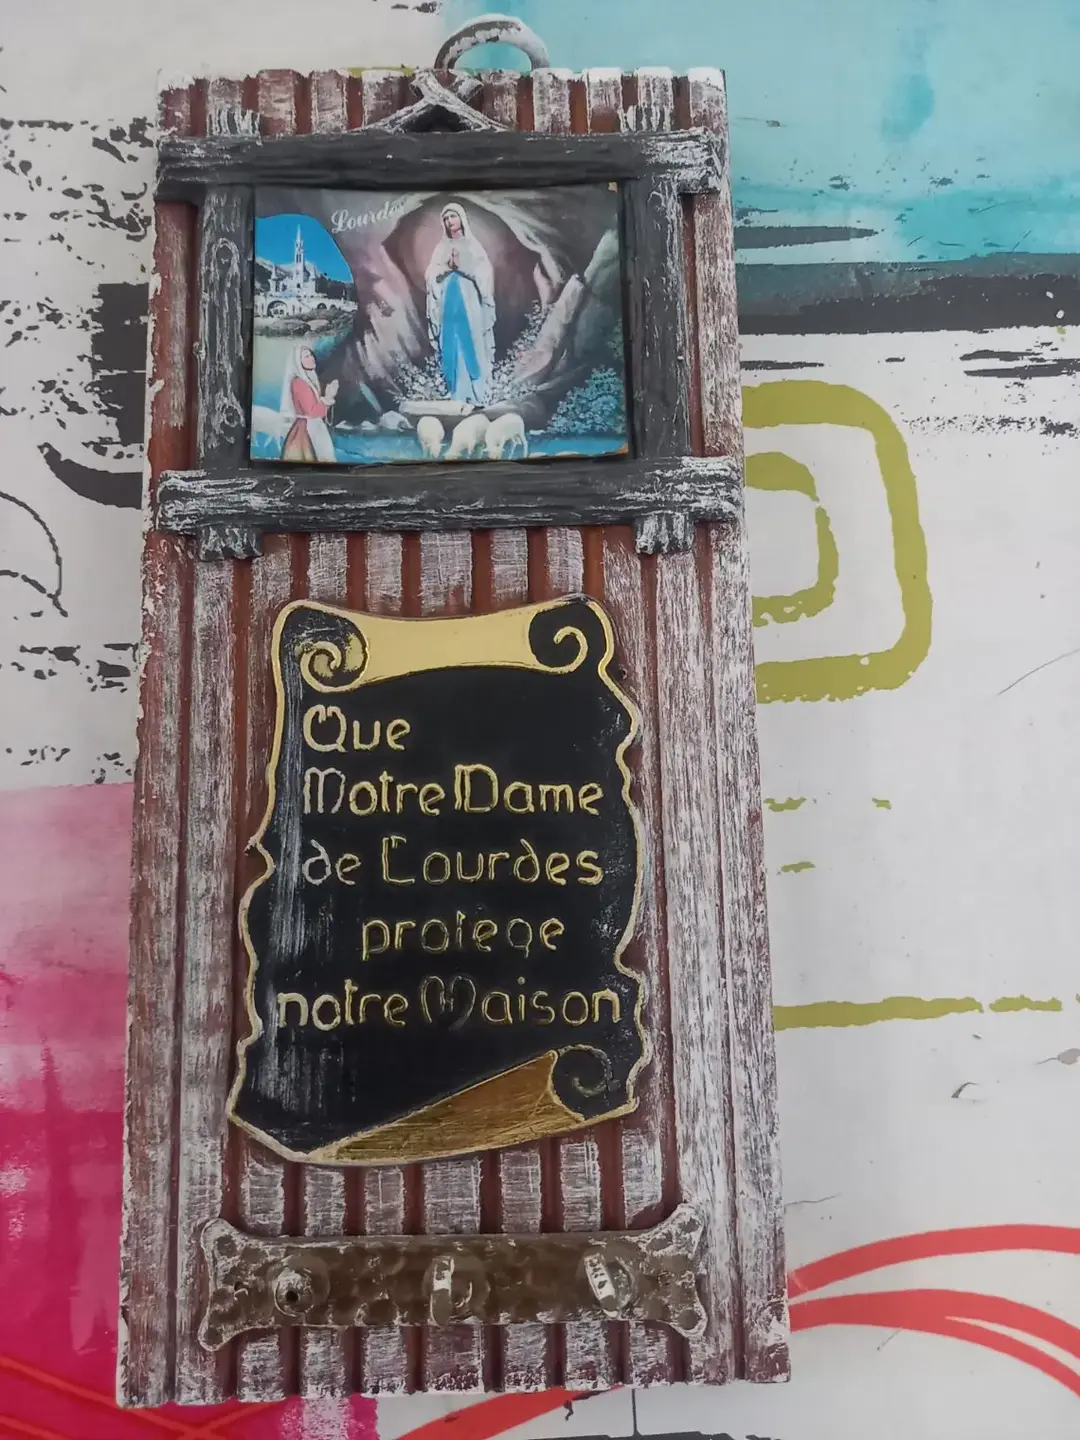 Lourdes
Que
Notre Dame
de Lourdes
protege
notre Maison